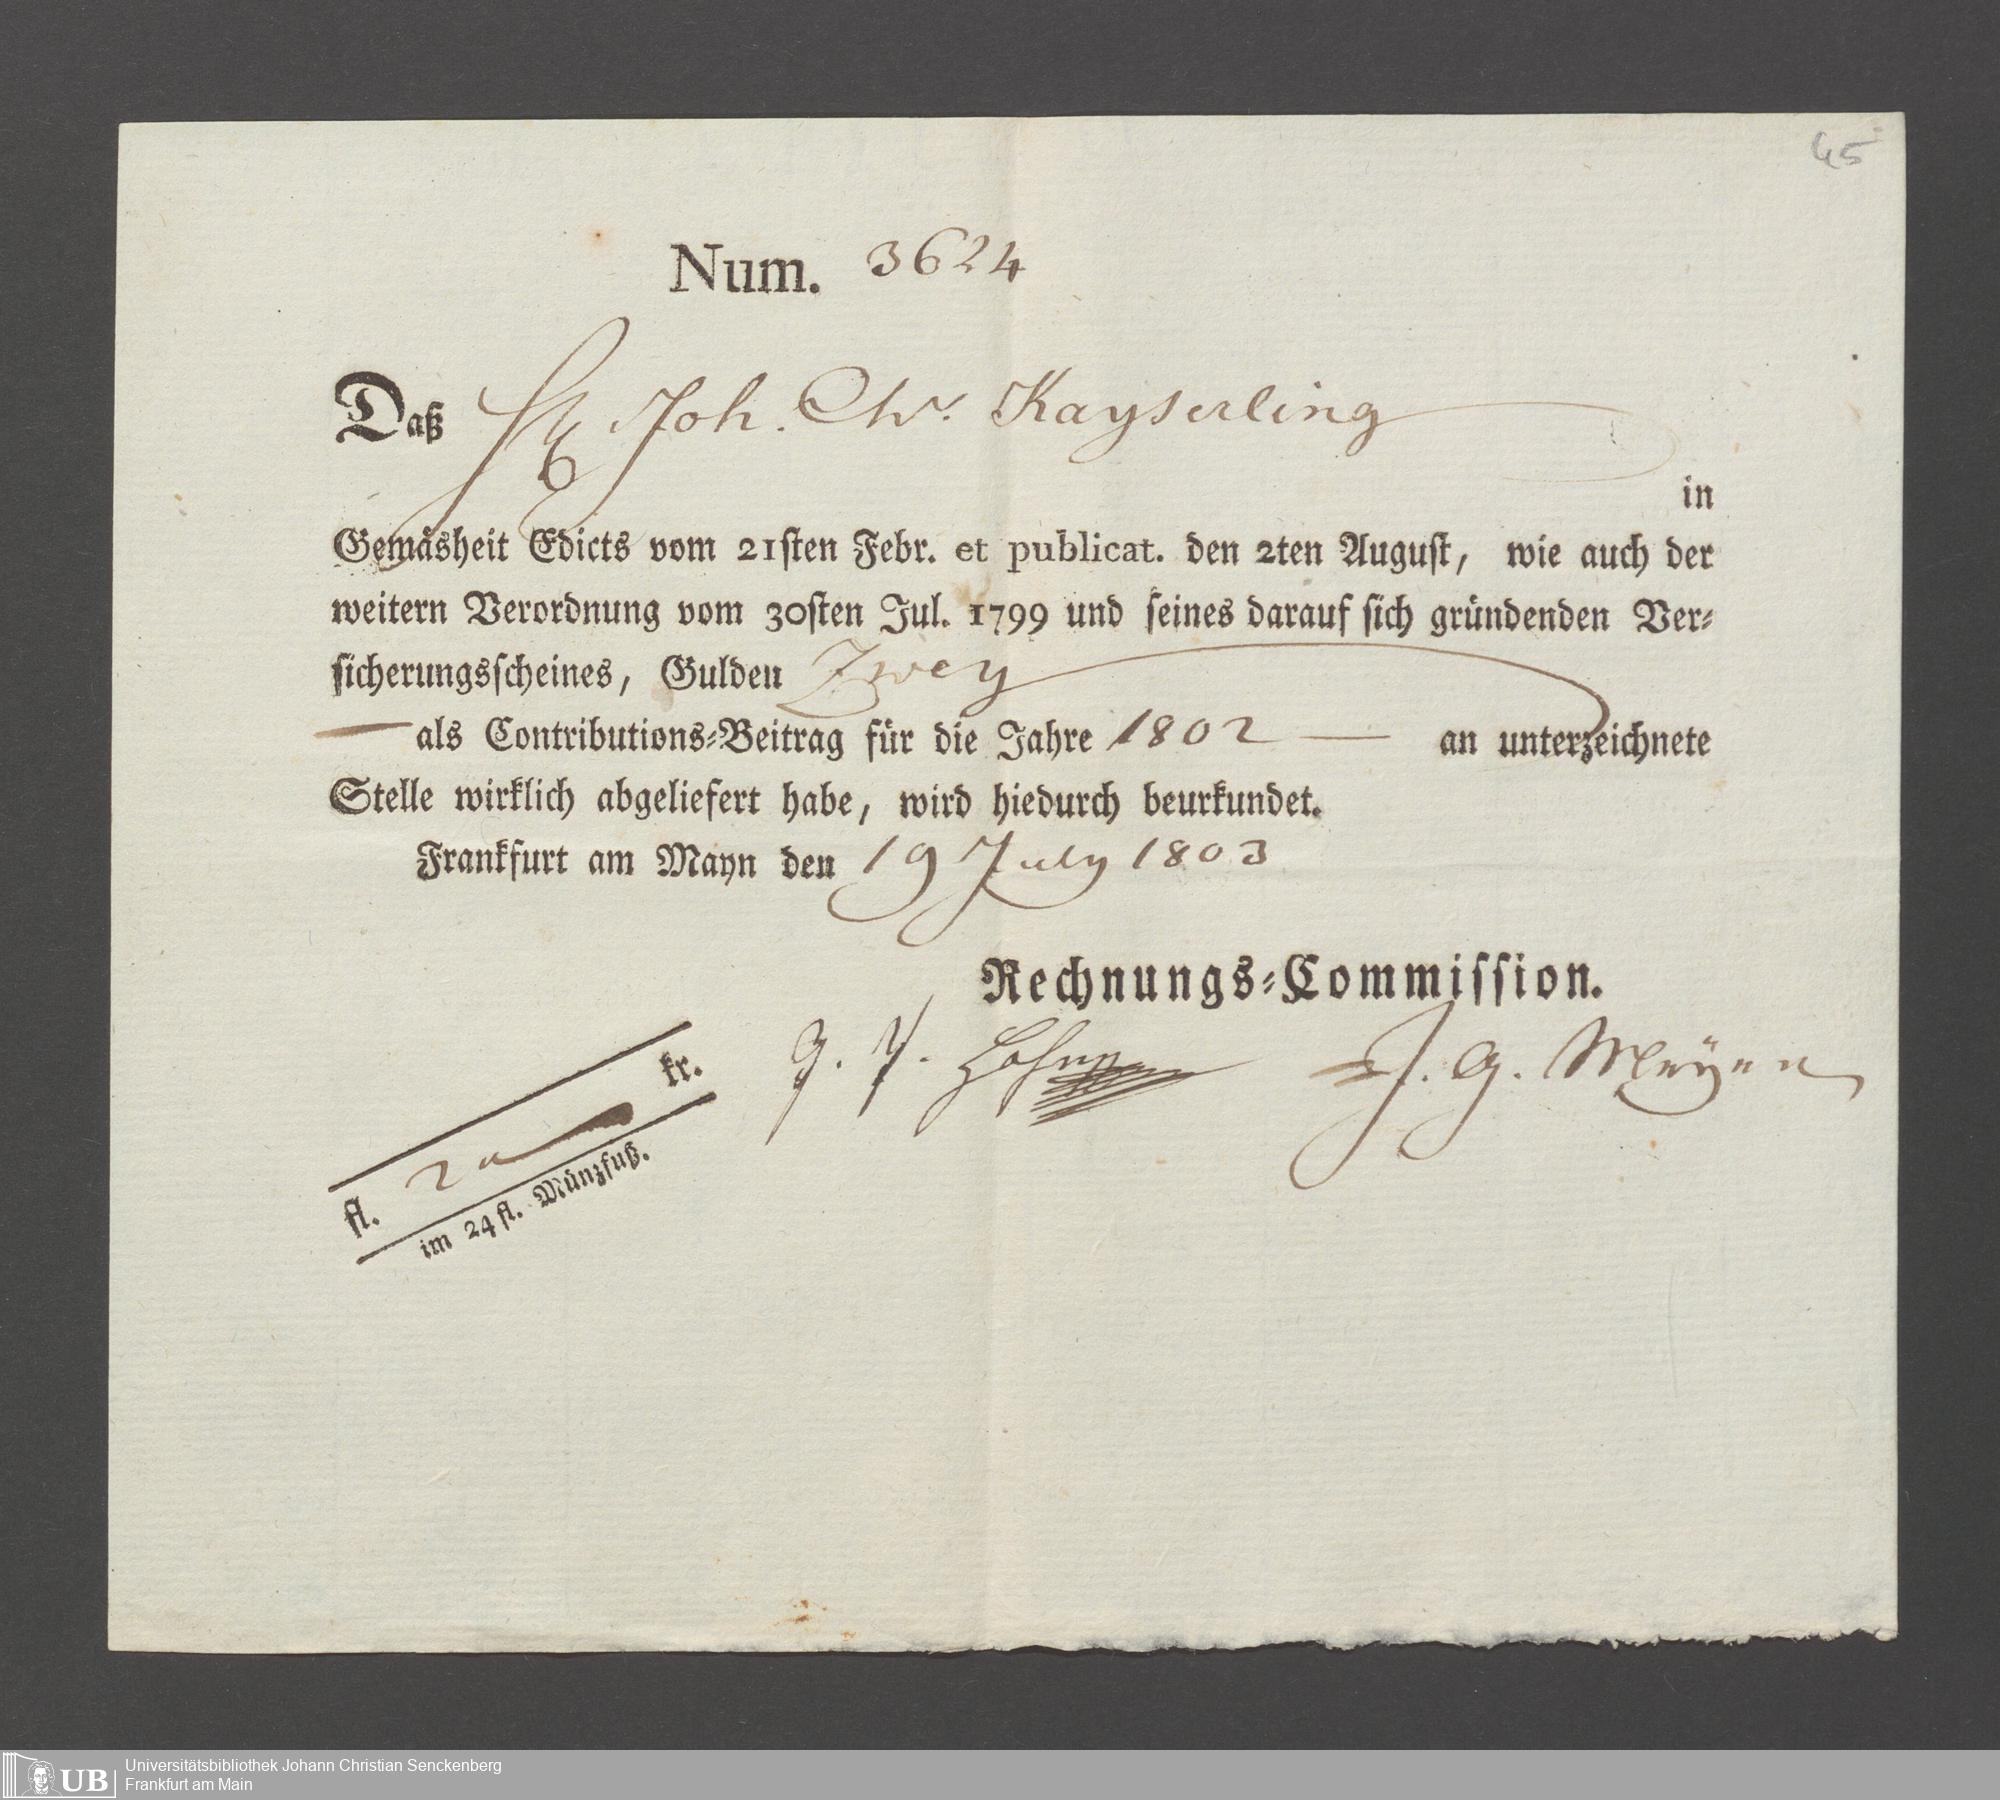 45
Num. 3624
Daß H. Joh. Chr. Kayserling
in
Gemäsheit Edicts vom 21sten Febr. et publicat. den 2ten August, wie auch der
weitern Verordnung vom 30sten Jul. 1799 und seines darauf sich gründenden Ver-
sicherungsscheines, Gulden Zwey
— als Contributions-Beitrag für die Jahre 1802 — an unterzeichnete
Stelle wirklich abgeliefert habe, wird hiedurch beurkundet.
Frankfurt am Mayn den 19 July 1803
Rechnungs-Commission.
J. G. Meyer
fl. 2 kr.
im 24 fl. Münzfuß.
UB
Universitätsbibliothek Johann Christian Senckenberg
Frankfurt am Main